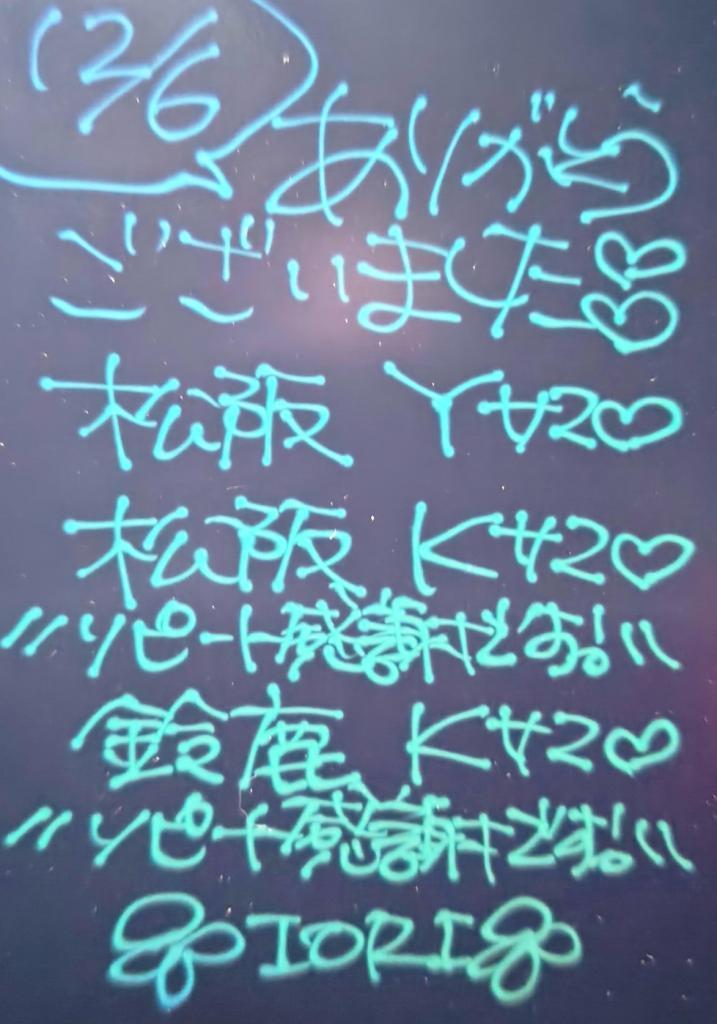 12/6
ありがとう〜
ございました♡♡
松阪 Yサン♡
松阪 Kサン♡
〃リピート感謝です!〃
鈴鹿 Kサン♡
〃リピート感謝です!〃
IORI